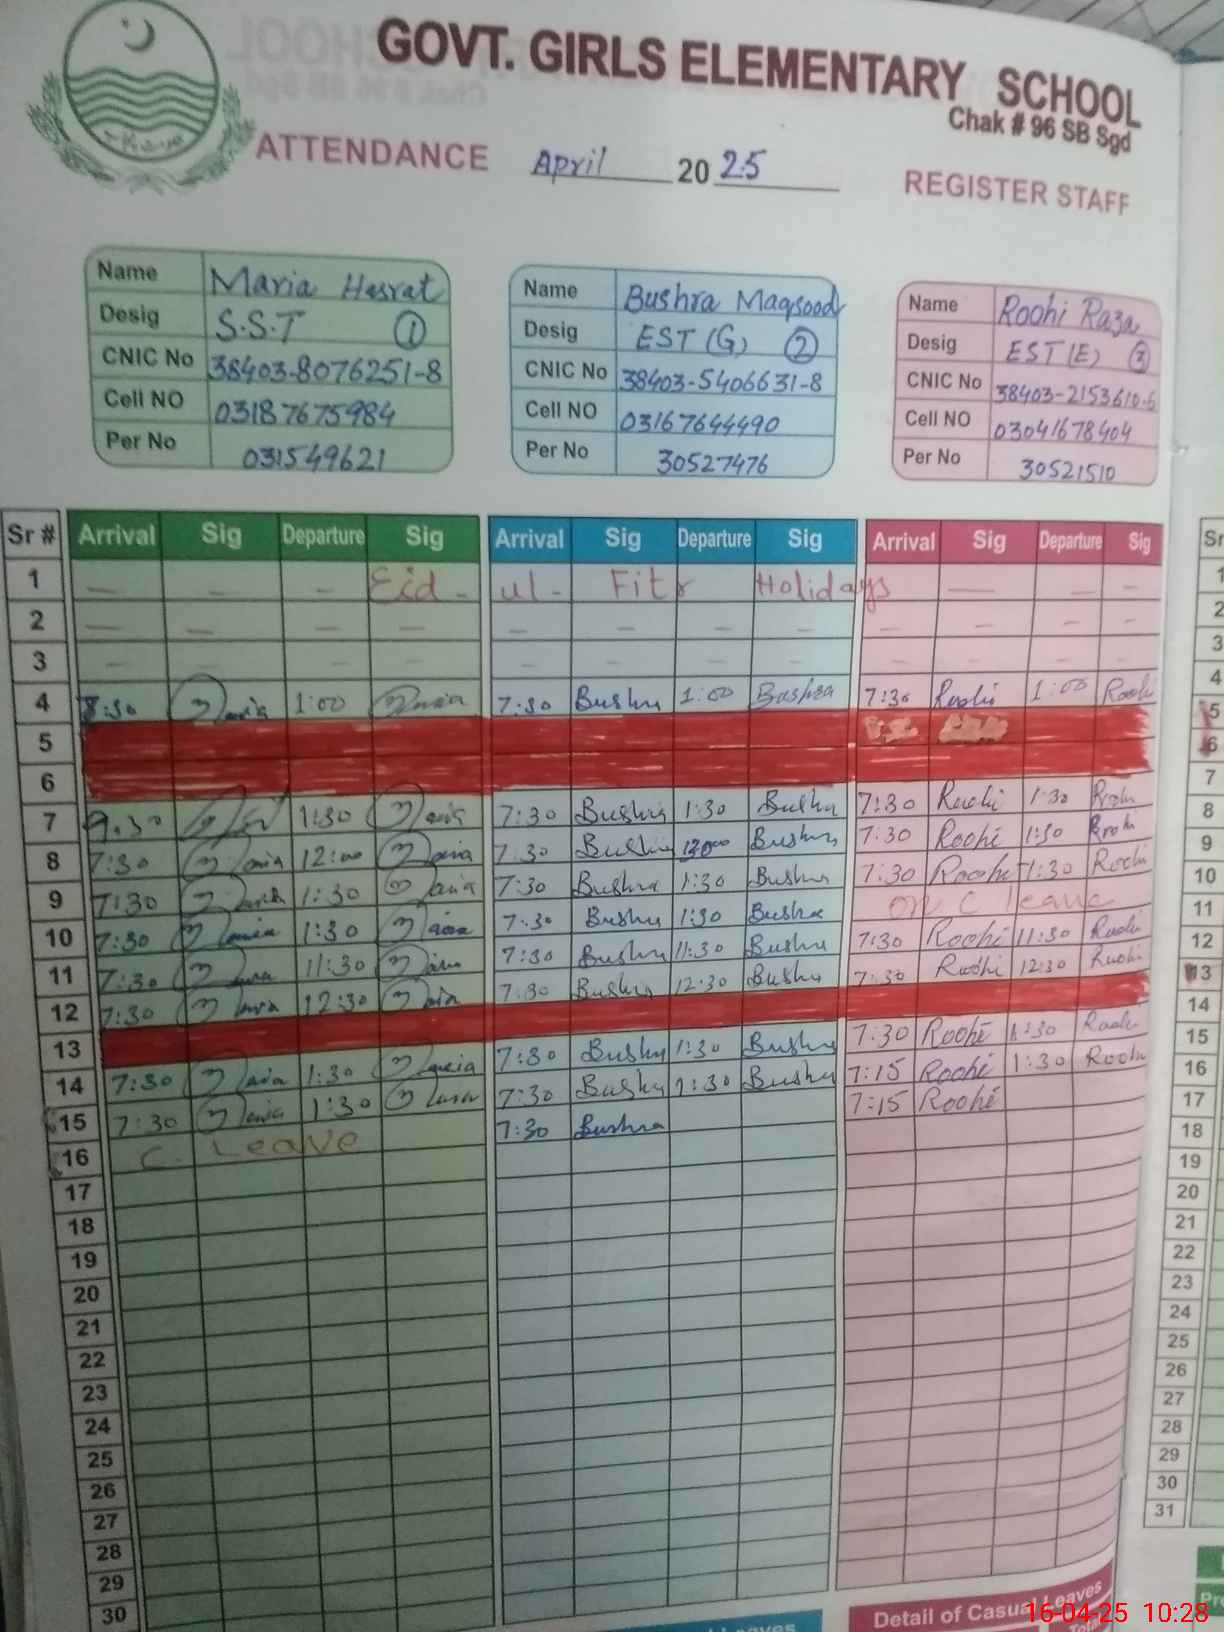 GOVT. GIRLS ELEMENTARY SCHOOL
Chak # 96 SB Sgd
ATTENDANCE April 2025 REGISTER STAFF
Name Maria Hasrat
Desig S.S.T 1
CNIC No 38403-8076251-8
Cell NO 03187675984
Per No 031549621
Name Bushra Maqsood
Desig EST (G) 2
CNIC No 38403-5406631-8
Cell NO 03167644490
Per No 30527476
Name Roohi Raza
Desig EST (E) 3
CNIC No 38403-2153610-6
Cell NO 03041678404
Per No 30521510
Sr # Arrival Sig Departure Sig Arrival Sig Departure Sig Arrival Sig Departure Sig
1 — — — Eid - ul - Fitr Holidays — — —
2 — — — — — — — — — — — —
3 — — — — — — — — — — — —
4 7:30 Maria 1:00 Maria 7:30 Bushra 1:00 Bushra 7:30 Roohi 1:00 Roohi
5
6
7 7:30 1:30 Maria 7:30 Bushra 1:30 Bushra 7:30 Roohi 1:30 Roohi
8 7:30 Maria 12:00 Maria 7:30 Bushra Bushra 7:30 Roohi 1:30 Roohi
9 7:30 Maria 1:30 Maria 7:30 Bushra 1:30 Bushra 7:30 Roohi 1:30 Roohi
10 7:30 Maria 1:30 Maria 7:30 Bushra 1:30 Bushra on C leave
11 7:30 Maria 11:30 Maria 7:30 Bushra 11:30 Bushra 7:30 Roohi 11:30 Roohi
12 7:30 Maria 12:30 Maria 7:30 Bushra 12:30 Bushra 7:30 Roohi 12:30 Roohi
13
14 7:30 Maria 1:30 Maria 7:30 Bushra 1:30 Bushra 7:30 Roohi 1:30 Roohi
15 7:30 Maria 1:30 Maria 7:30 Bushra 1:30 Bushra 7:15 Roohi 1:30 Roohi
16 C. Leave 7:30 Bushra 7:15 Roohi
17
18
19
20
21
22
23
24
25
26
27
28
29
30
Leaves
Detail of Casual Leaves
Total
Sr
1
2
3
4
5
6
7
8
9
10
11
12
13
14
15
16
17
18
19
20
21
22
23
24
25
26
27
28
29
30
31
16-04-25 10:28